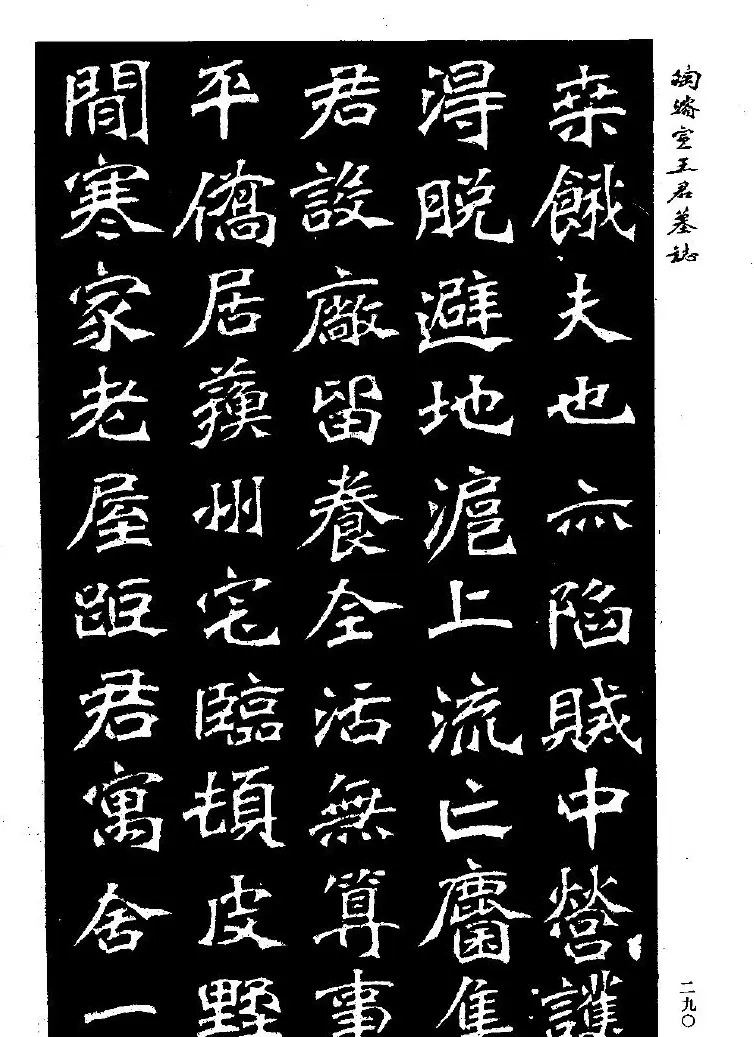 陶濬宣王君墓誌
桒餓夫也亦陷賊中營護
淂脱避地滬上流亡麕集
君設廠留養全活無算事
平僑居蘓州宅臨頓皮墅
閒寒家老屋距君寓舍一
二九〇